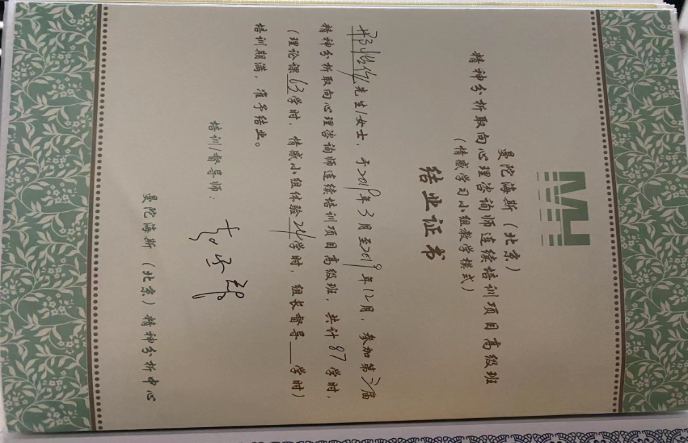 MH
曼陀海斯（北京）
精神分析取向心理咨询师连续培训项目高级班
（情感学习小组教学模式）
结业证书
先生/女士，于2019年3月至2019年12月，参加第三届
精神分析取向心理咨询师连续培训项目高级班，共计87学时，
（理论课63学时，情感小组体验24学时，组长督导__学时）
培训期满，准予结业。
培训/督导师：
曼陀海斯（北京）精神分析中心